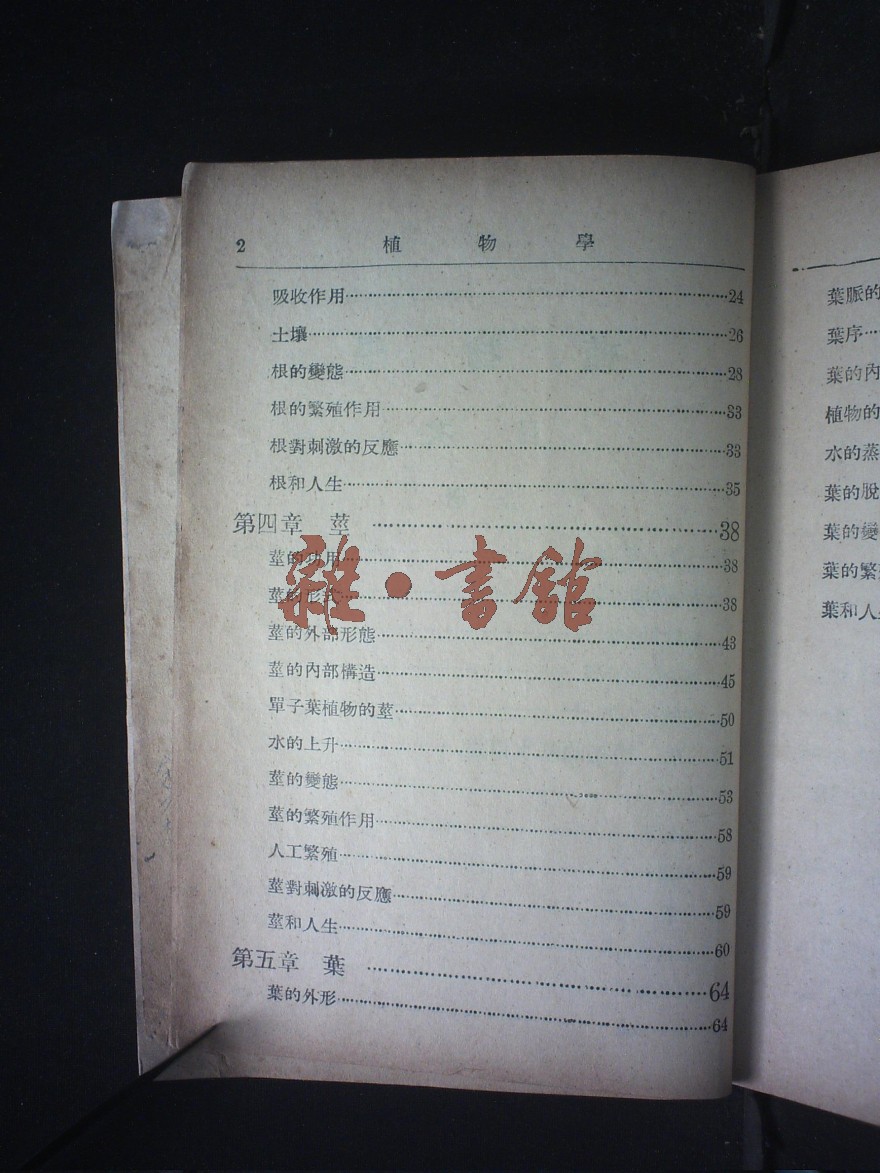 2 植物學
吸收作用 24
土壤 26
根的變態 28
根的繁殖作用 33
根對刺激的反應 33
根和人生 35
第四章 莖 38
莖的功用 38
莖的形式 38
莖的外部形態 43
莖的內部構造 45
單子葉植物的莖 50
水的上升 51
莖的變態 53
莖的繁殖作用 58
人工繁殖 59
莖對刺激的反應 59
莖和人生 60
第五章 葉 64
葉的外形 64
雜·書館
葉脈的
葉序
葉的內
植物的
水的蒸
葉的脫
葉的變
葉的繁
葉和人